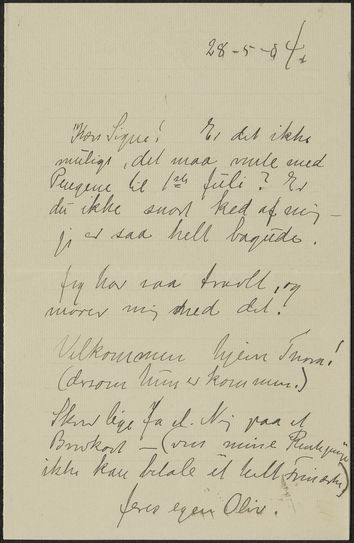 28-5-04
Kære Signe! Er det ikke
muligt, det maa vente med
Pengene til 1ste Juli? Er
du ikke snart ked af mig –
jeg er saa helt bagude.
Jeg har saa travlt, og
morer mig med det.
Velkommen hjem Thora!
(dersom hun er kommen.)
Skriv lige Ja el. Nej paa et
Brevkort – (mine
ikke kan betale et helt Frimærke)
Jeres egen Olivia.